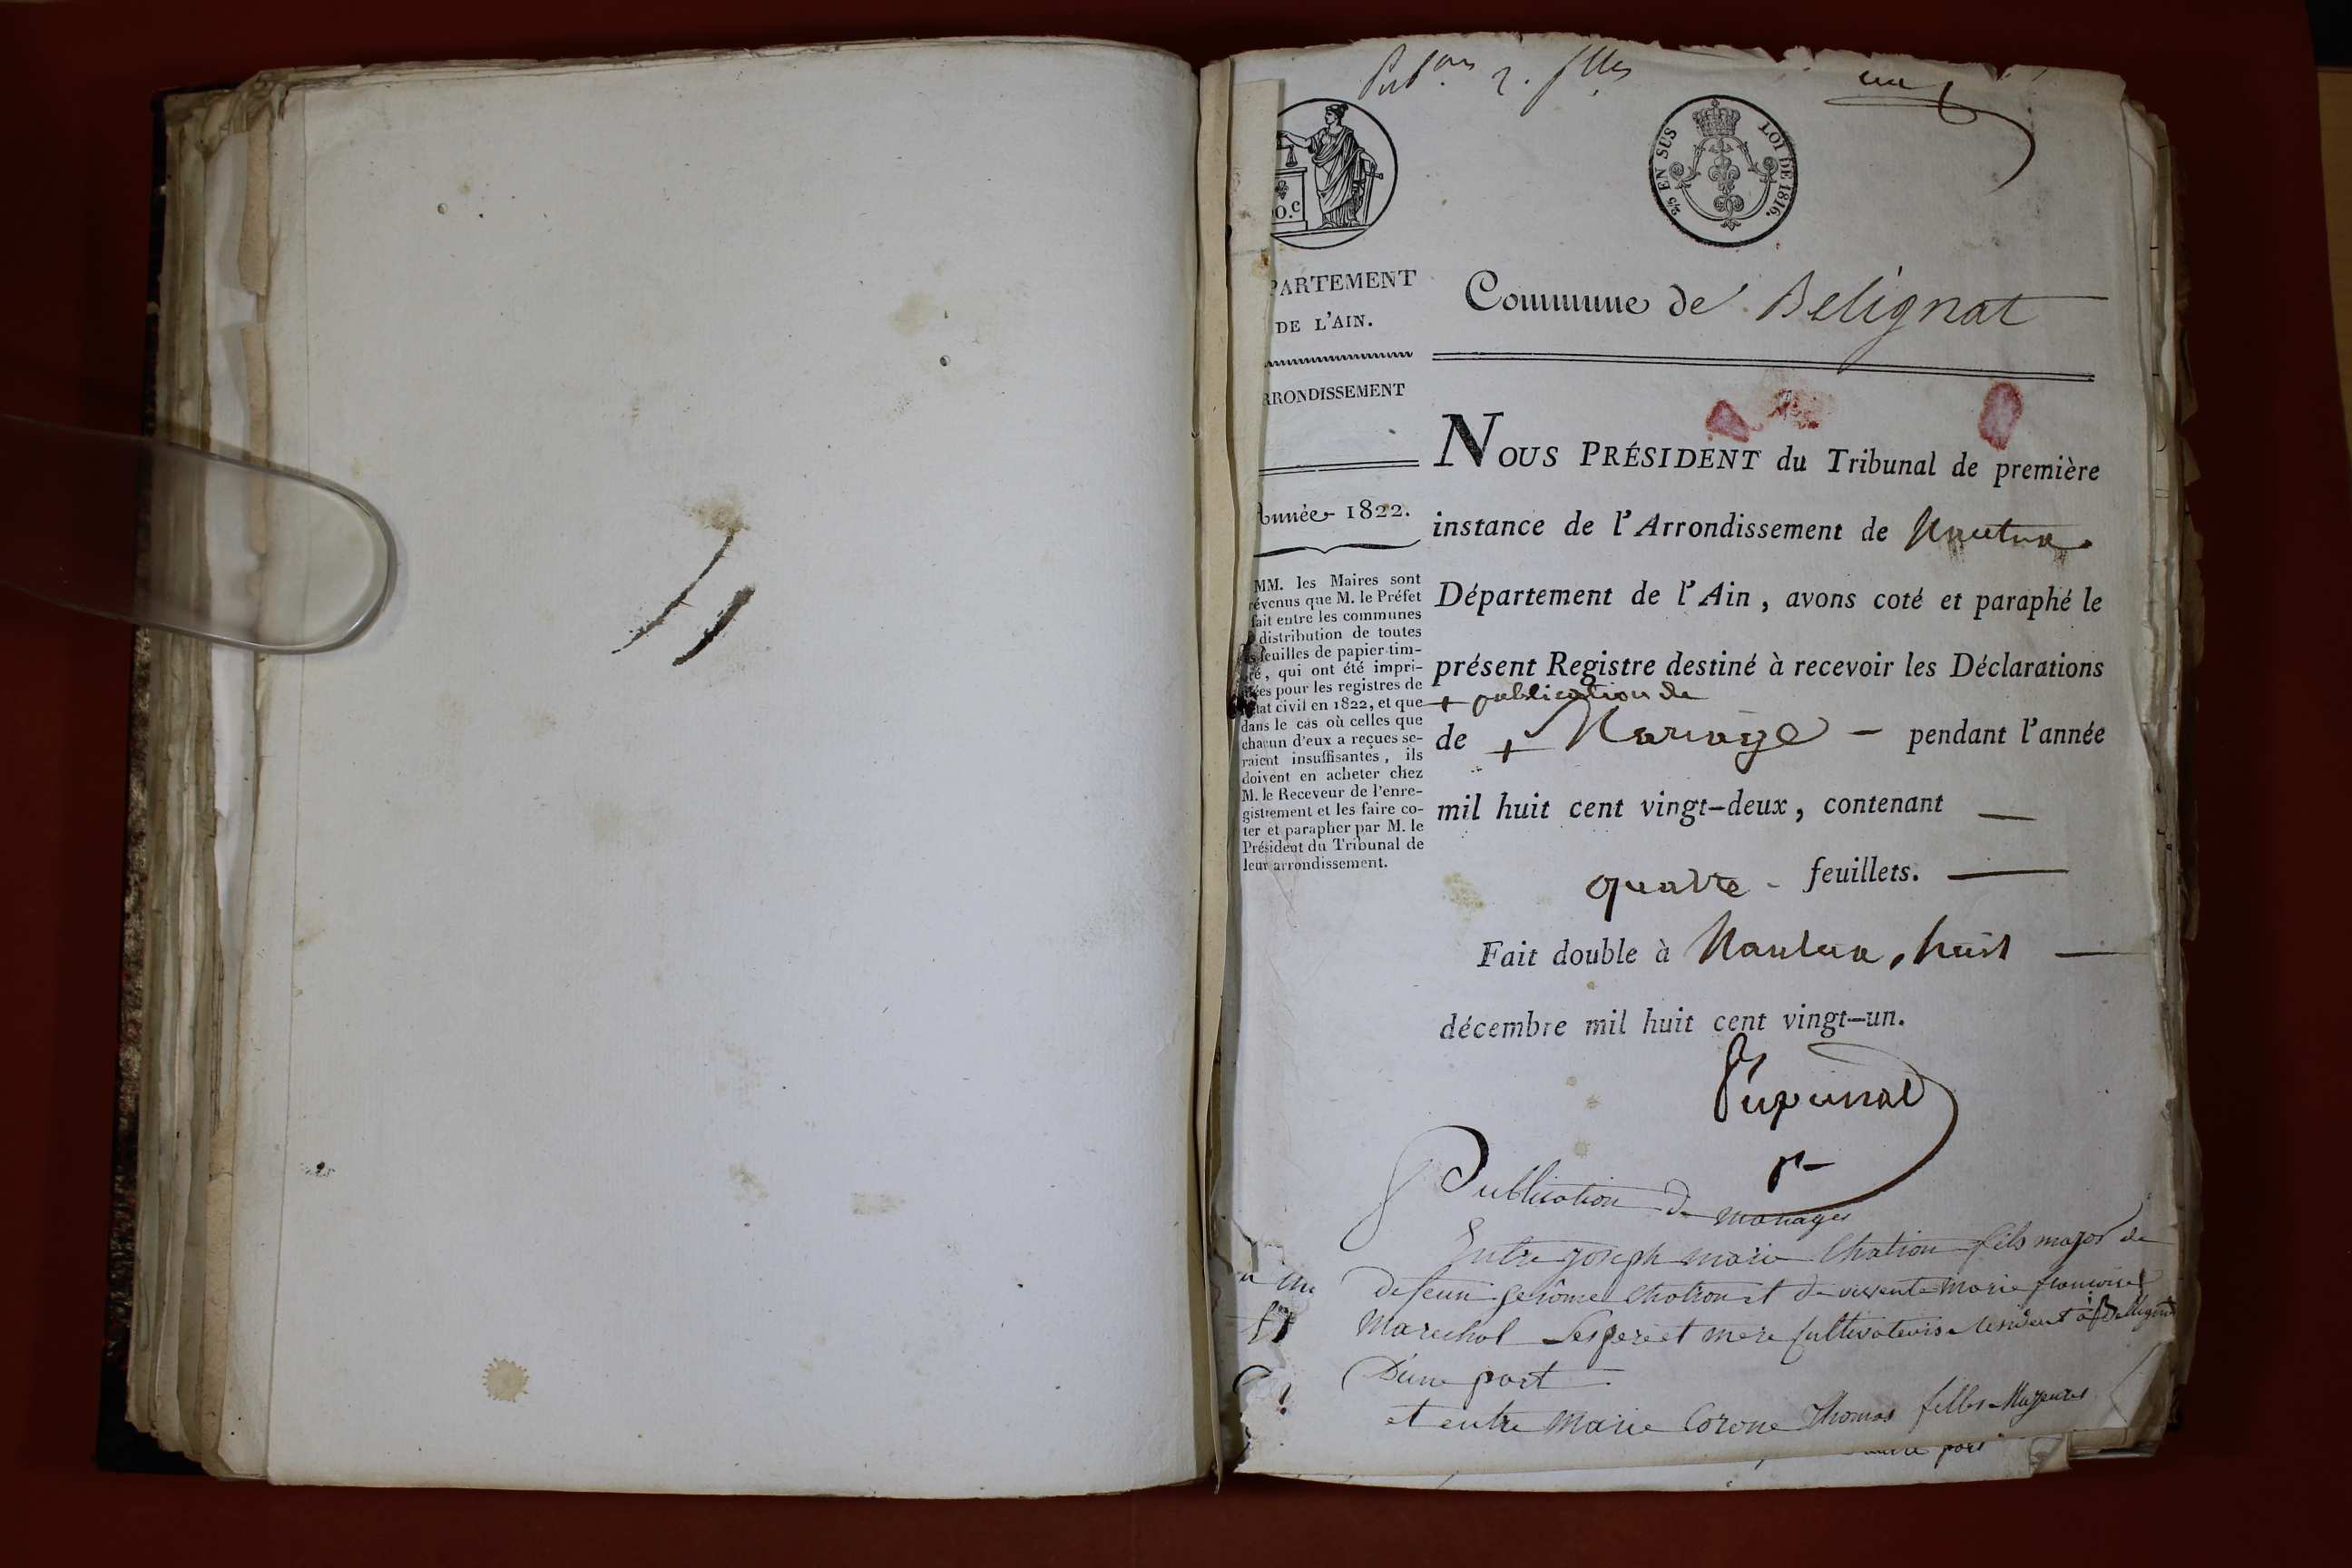 un
2/5 EN SUS
LOI DE 1816.
0.c
PARTEMENT
DE L'AIN.
RRONDISSEMENT
Année 1822.
MM. les Maires sont
révenus que M. le Préfet
fait entre les communes
distribution de toutes
feuilles de papier tim-
ré, qui ont été impri-
ées pour les registres de
tat civil en 1822, et que
dans le cas où celles que
chacun d'eux a reçues se-
raient insuffisantes, ils
doivent en acheter chez
M. le Receveur de l'enre-
gistrement et les faire co-
ter et parapher par M. le
Président du Tribunal de
leur arrondissement.
Commune de Belignat
NOUS PRÉSIDENT du Tribunal de première
instance de l'Arrondissement de Nantua
Département de l'Ain, avons coté et paraphé le
présent Registre destiné à recevoir les Déclarations
+ publication de
de + Mariage - pendant l'année
mil huit cent vingt-deux, contenant
quatre - feuillets.
Fait double à Nantua, huit
décembre mil huit cent vingt-un.
Publication de mariages
Entre joseph marie Chation fils major de
defeun gerôme Chation et de vivente marie francoise
Marechal Ses pere et mere Cultivateurs resident à Bellignat
D'une part
et entre Marie Corone Thomas filles Majeures